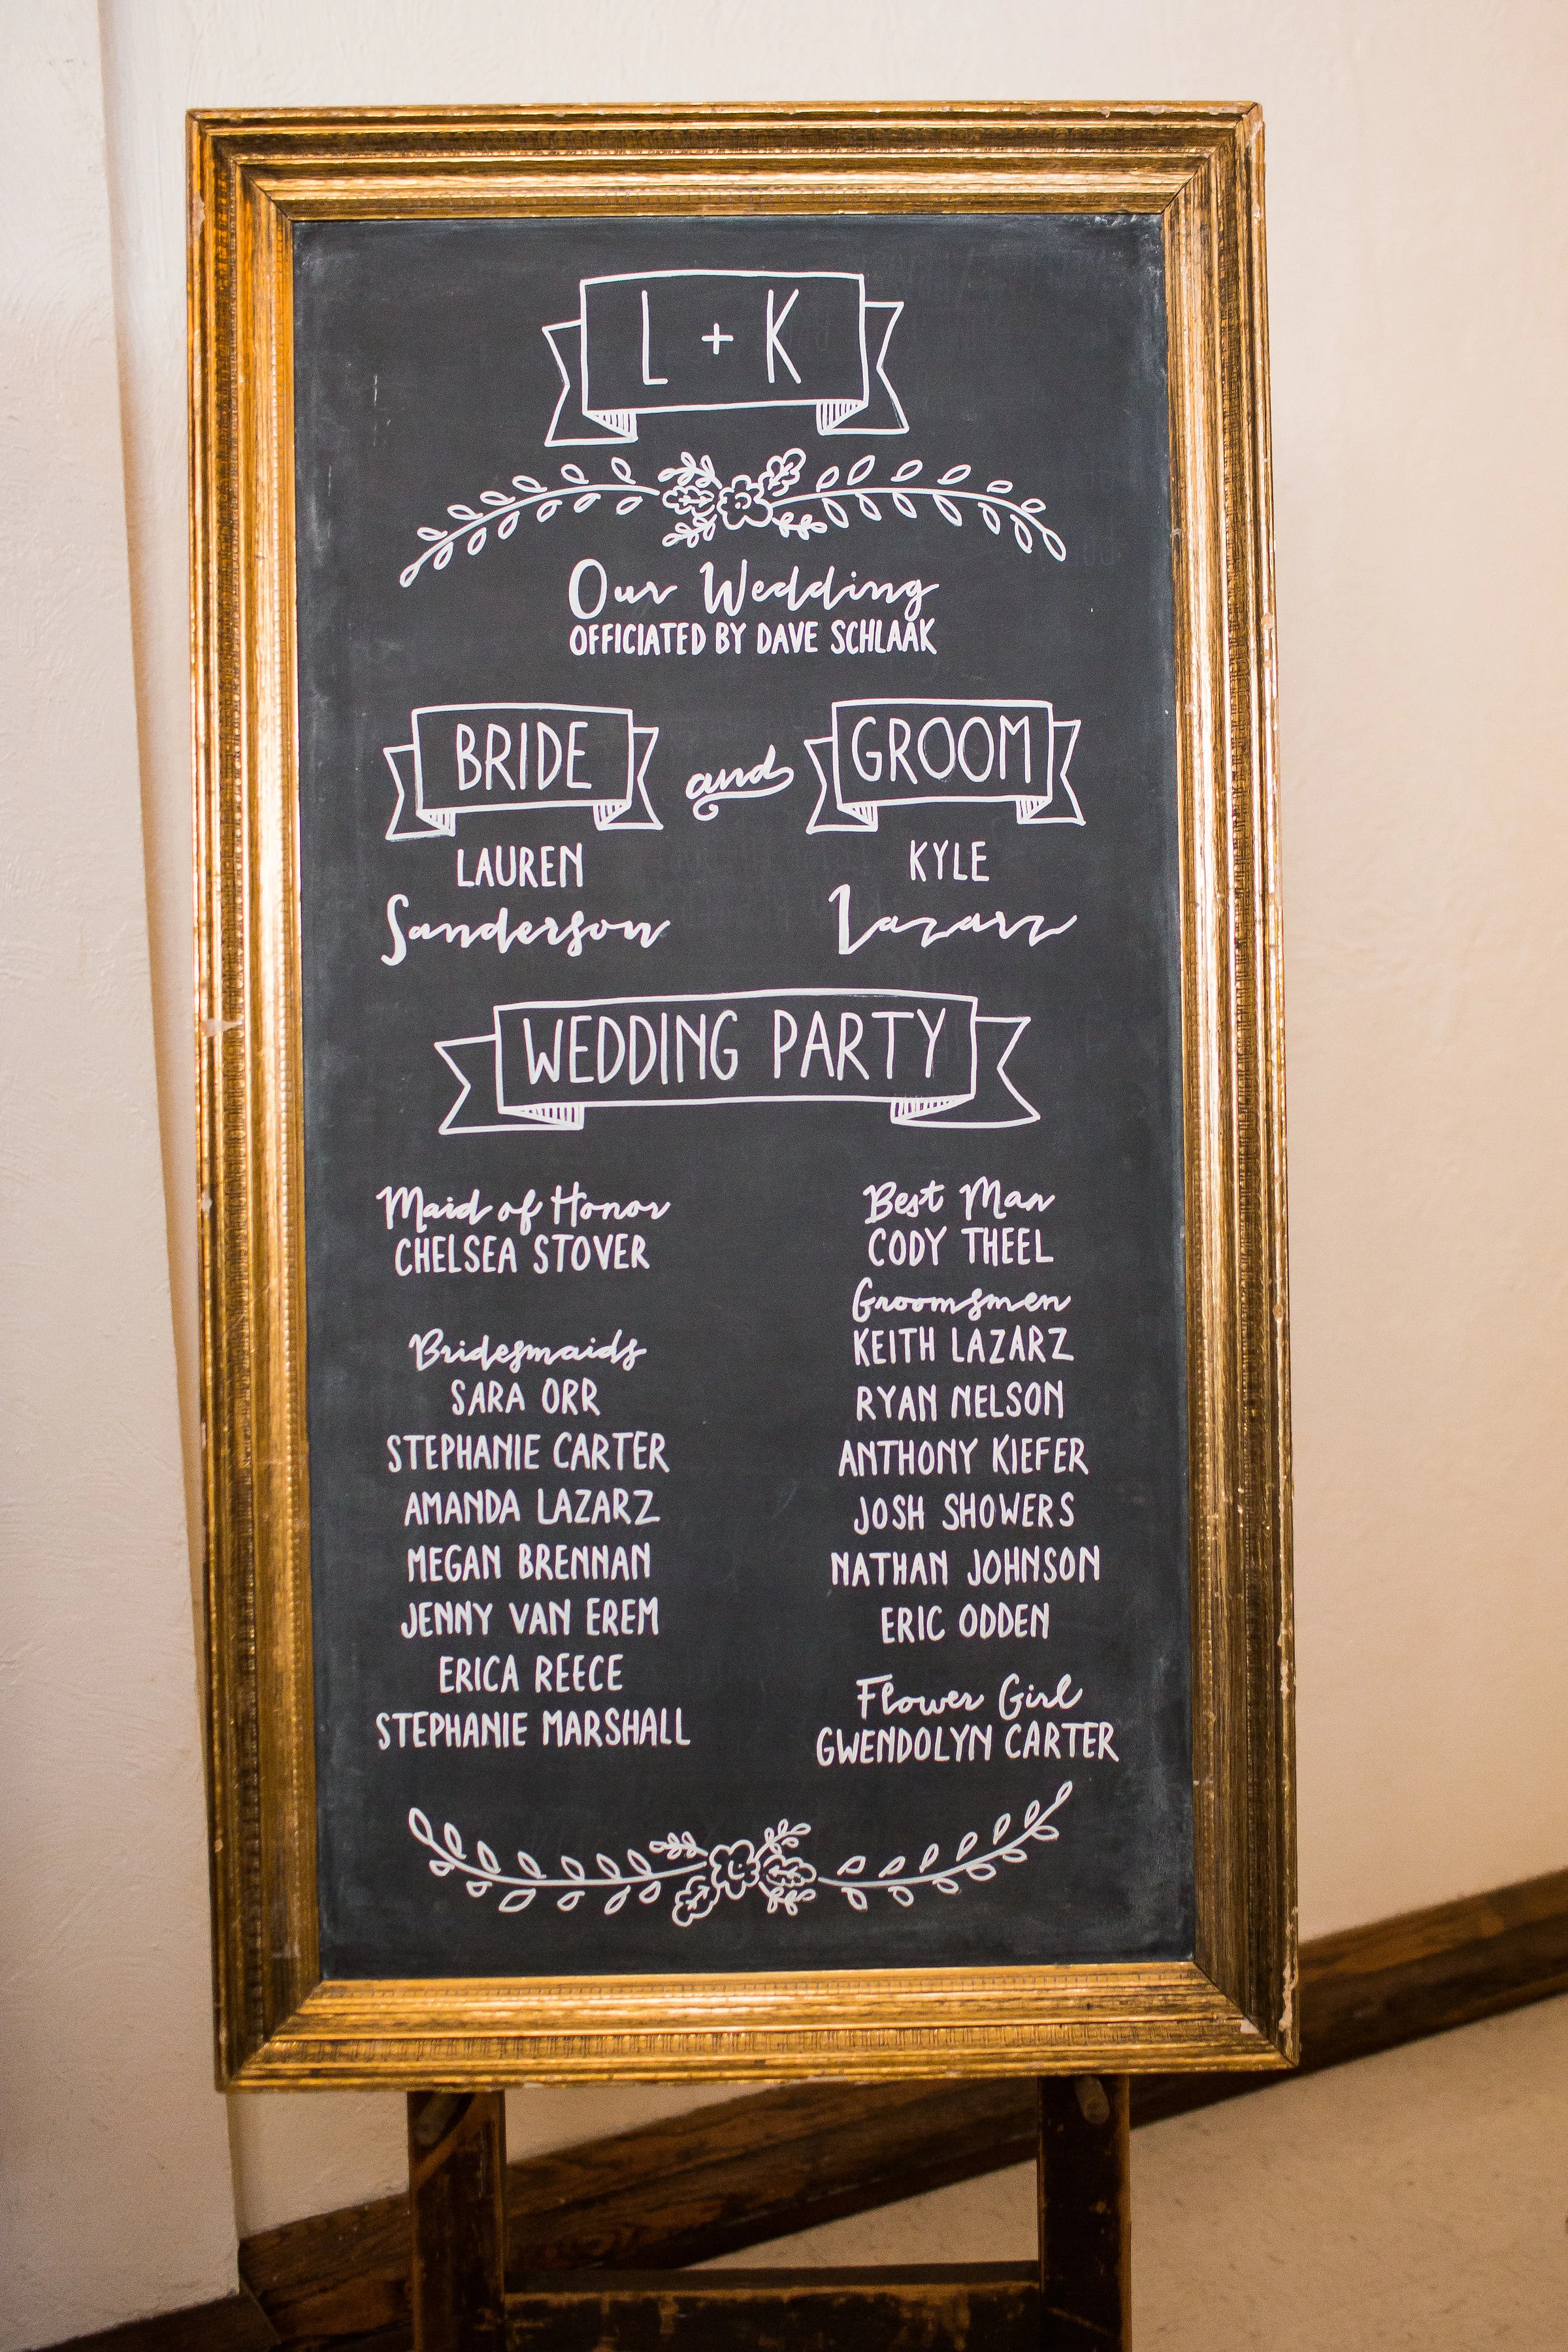 L + K
Our Wedding
OFFICIATED BY DAVE SCHLAAK
BRIDE and GROOM
LAUREN
Sanderson
KYLE
Lazarz
WEDDING PARTY
Maid of Honor
CHELSEA STOVER
Bridesmaids
SARA ORR
STEPHANIE CARTER
AMANDA LAZARZ
MEGAN BRENNAN
JENNY VAN EREM
ERICA REECE
STEPHANIE MARSHALL
Best Man
CODY THEEL
Groomsmen
KEITH LAZARZ
RYAN NELSON
ANTHONY KIEFER
JOSH SHOWERS
NATHAN JOHNSON
ERIC ODDEN
Flower Girl
GWENDOLYN CARTER